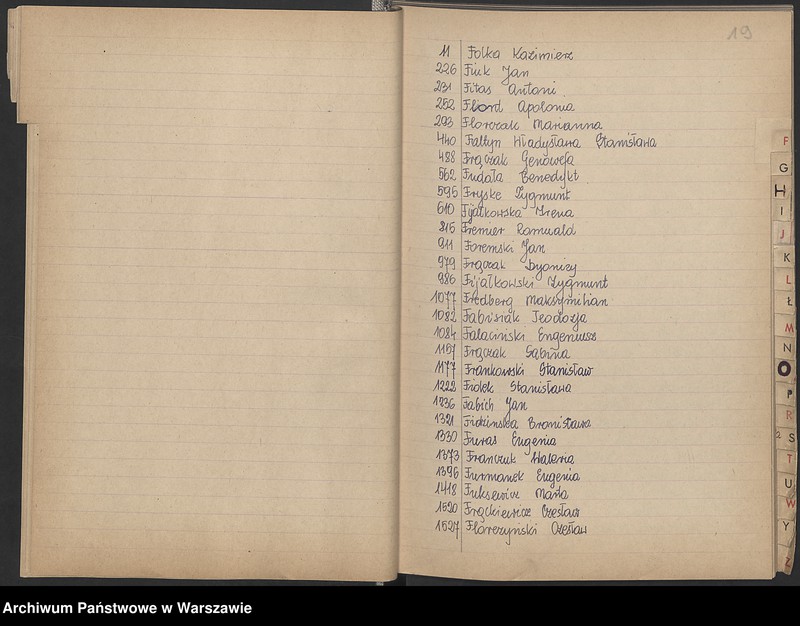 19
11 Folka Kazimierz
226 Fiuk Jan
231 Fitas Antoni
252 Fliord Apolonia
293 Florczak Marianna
440 Faltyn Władysława Stanisława
488 Frączak Genowefa
562 Fudała Benedykt
595 Fryske Zygmunt
610 Fijałkowska Irena
815 Fremier Romuald
911 Foremski Jan
979 Frączak Dyonizy
986 Fijałkowski Zygmunt
1077 Fredberg Maksymilian
1082 Fabisiak Teodozja
1084 Falaciński Eugeniusz
1157 Frączak Sabina
1177 Frankowski Stanisław
1222 Fidek Stanisława
1236 Fabich Jan
1321 Bronisława
1330 Furas Eugenia
1373 Franczuk Waleria
1396 Furmanek Eugenia
1418 Fuksewicz Marta
1520 Frąckiewicz Czesław
1527 Florczyński Czesław
F
G
H
I
J
K
L
Ł
M
N
O
P
R
S
T
U
W
Y
Z
Archiwum Państwowe w Warszawie